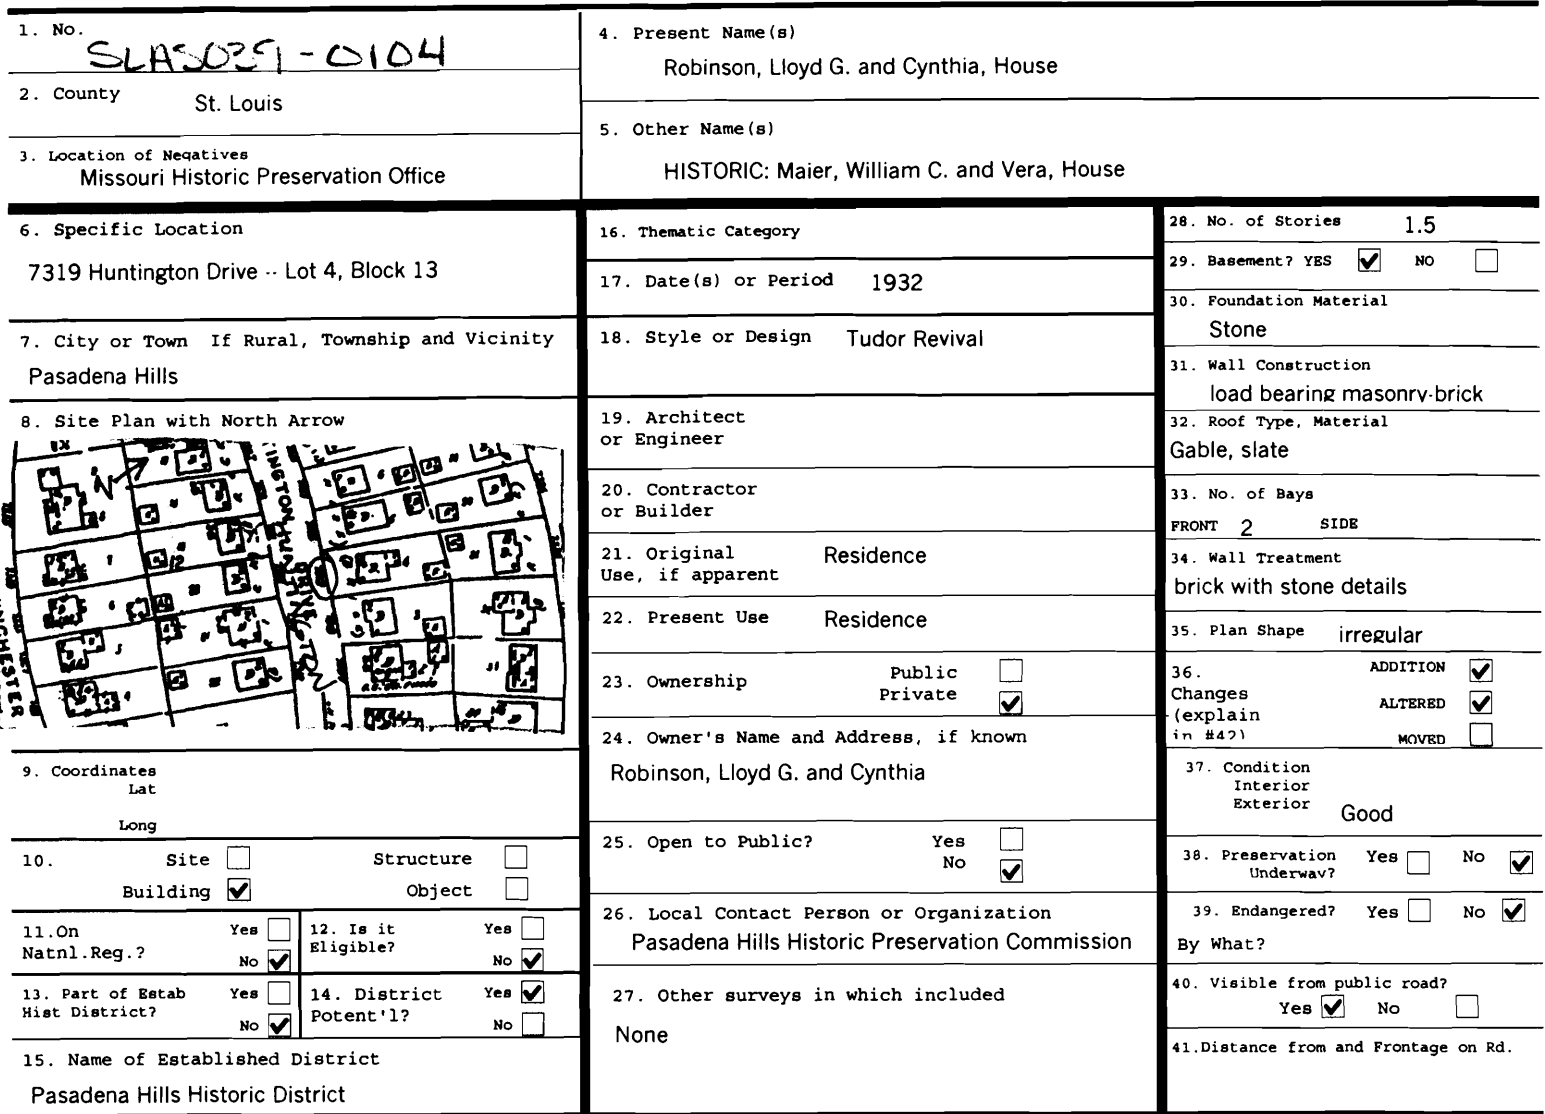 1. No.
SLAS029-0104
2. County St. Louis
3. Location of Negatives
Missouri Historic Preservation Office
4. Present Name(s)
Robinson, Lloyd G. and Cynthia, House
5. Other Name(s)
HISTORIC: Maier, William C. and Vera, House
6. Specific Location
7319 Huntington Drive -- Lot 4, Block 13
7. City or Town If Rural, Township and Vicinity
Pasadena Hills
8. Site Plan with North Arrow
N
9. Coordinates
Lat
Long
10. Site Structure
Building ✔ Object
11.On Yes
Natnl.Reg.? No ✔
12. Is it Yes
Eligible? No ✔
13. Part of Estab Yes
Hist District? No ✔
14. District Yes ✔
Potent'l? No
15. Name of Established District
Pasadena Hills Historic District
16. Thematic Category
17. Date(s) or Period 1932
18. Style or Design Tudor Revival
19. Architect
or Engineer
20. Contractor
or Builder
21. Original Residence
Use, if apparent
22. Present Use Residence
23. Ownership Public
Private ✔
24. Owner's Name and Address, if known
Robinson, Lloyd G. and Cynthia
25. Open to Public? Yes
No ✔
26. Local Contact Person or Organization
Pasadena Hills Historic Preservation Commission
27. Other surveys in which included
None
28. No. of Stories 1.5
29. Basement? YES ✔ NO
30. Foundation Material
Stone
31. Wall Construction
load bearing masonry-brick
32. Roof Type, Material
Gable, slate
33. No. of Bays
FRONT 2 SIDE
34. Wall Treatment
brick with stone details
35. Plan Shape irregular
36. ADDITION ✔
Changes
(explain ALTERED ✔
in #42) MOVED
37. Condition
Interior
Exterior Good
38. Preservation Yes No ✔
Underway?
39. Endangered? Yes No ✔
By What?
40. Visible from public road?
Yes ✔ No
41.Distance from and Frontage on Rd.